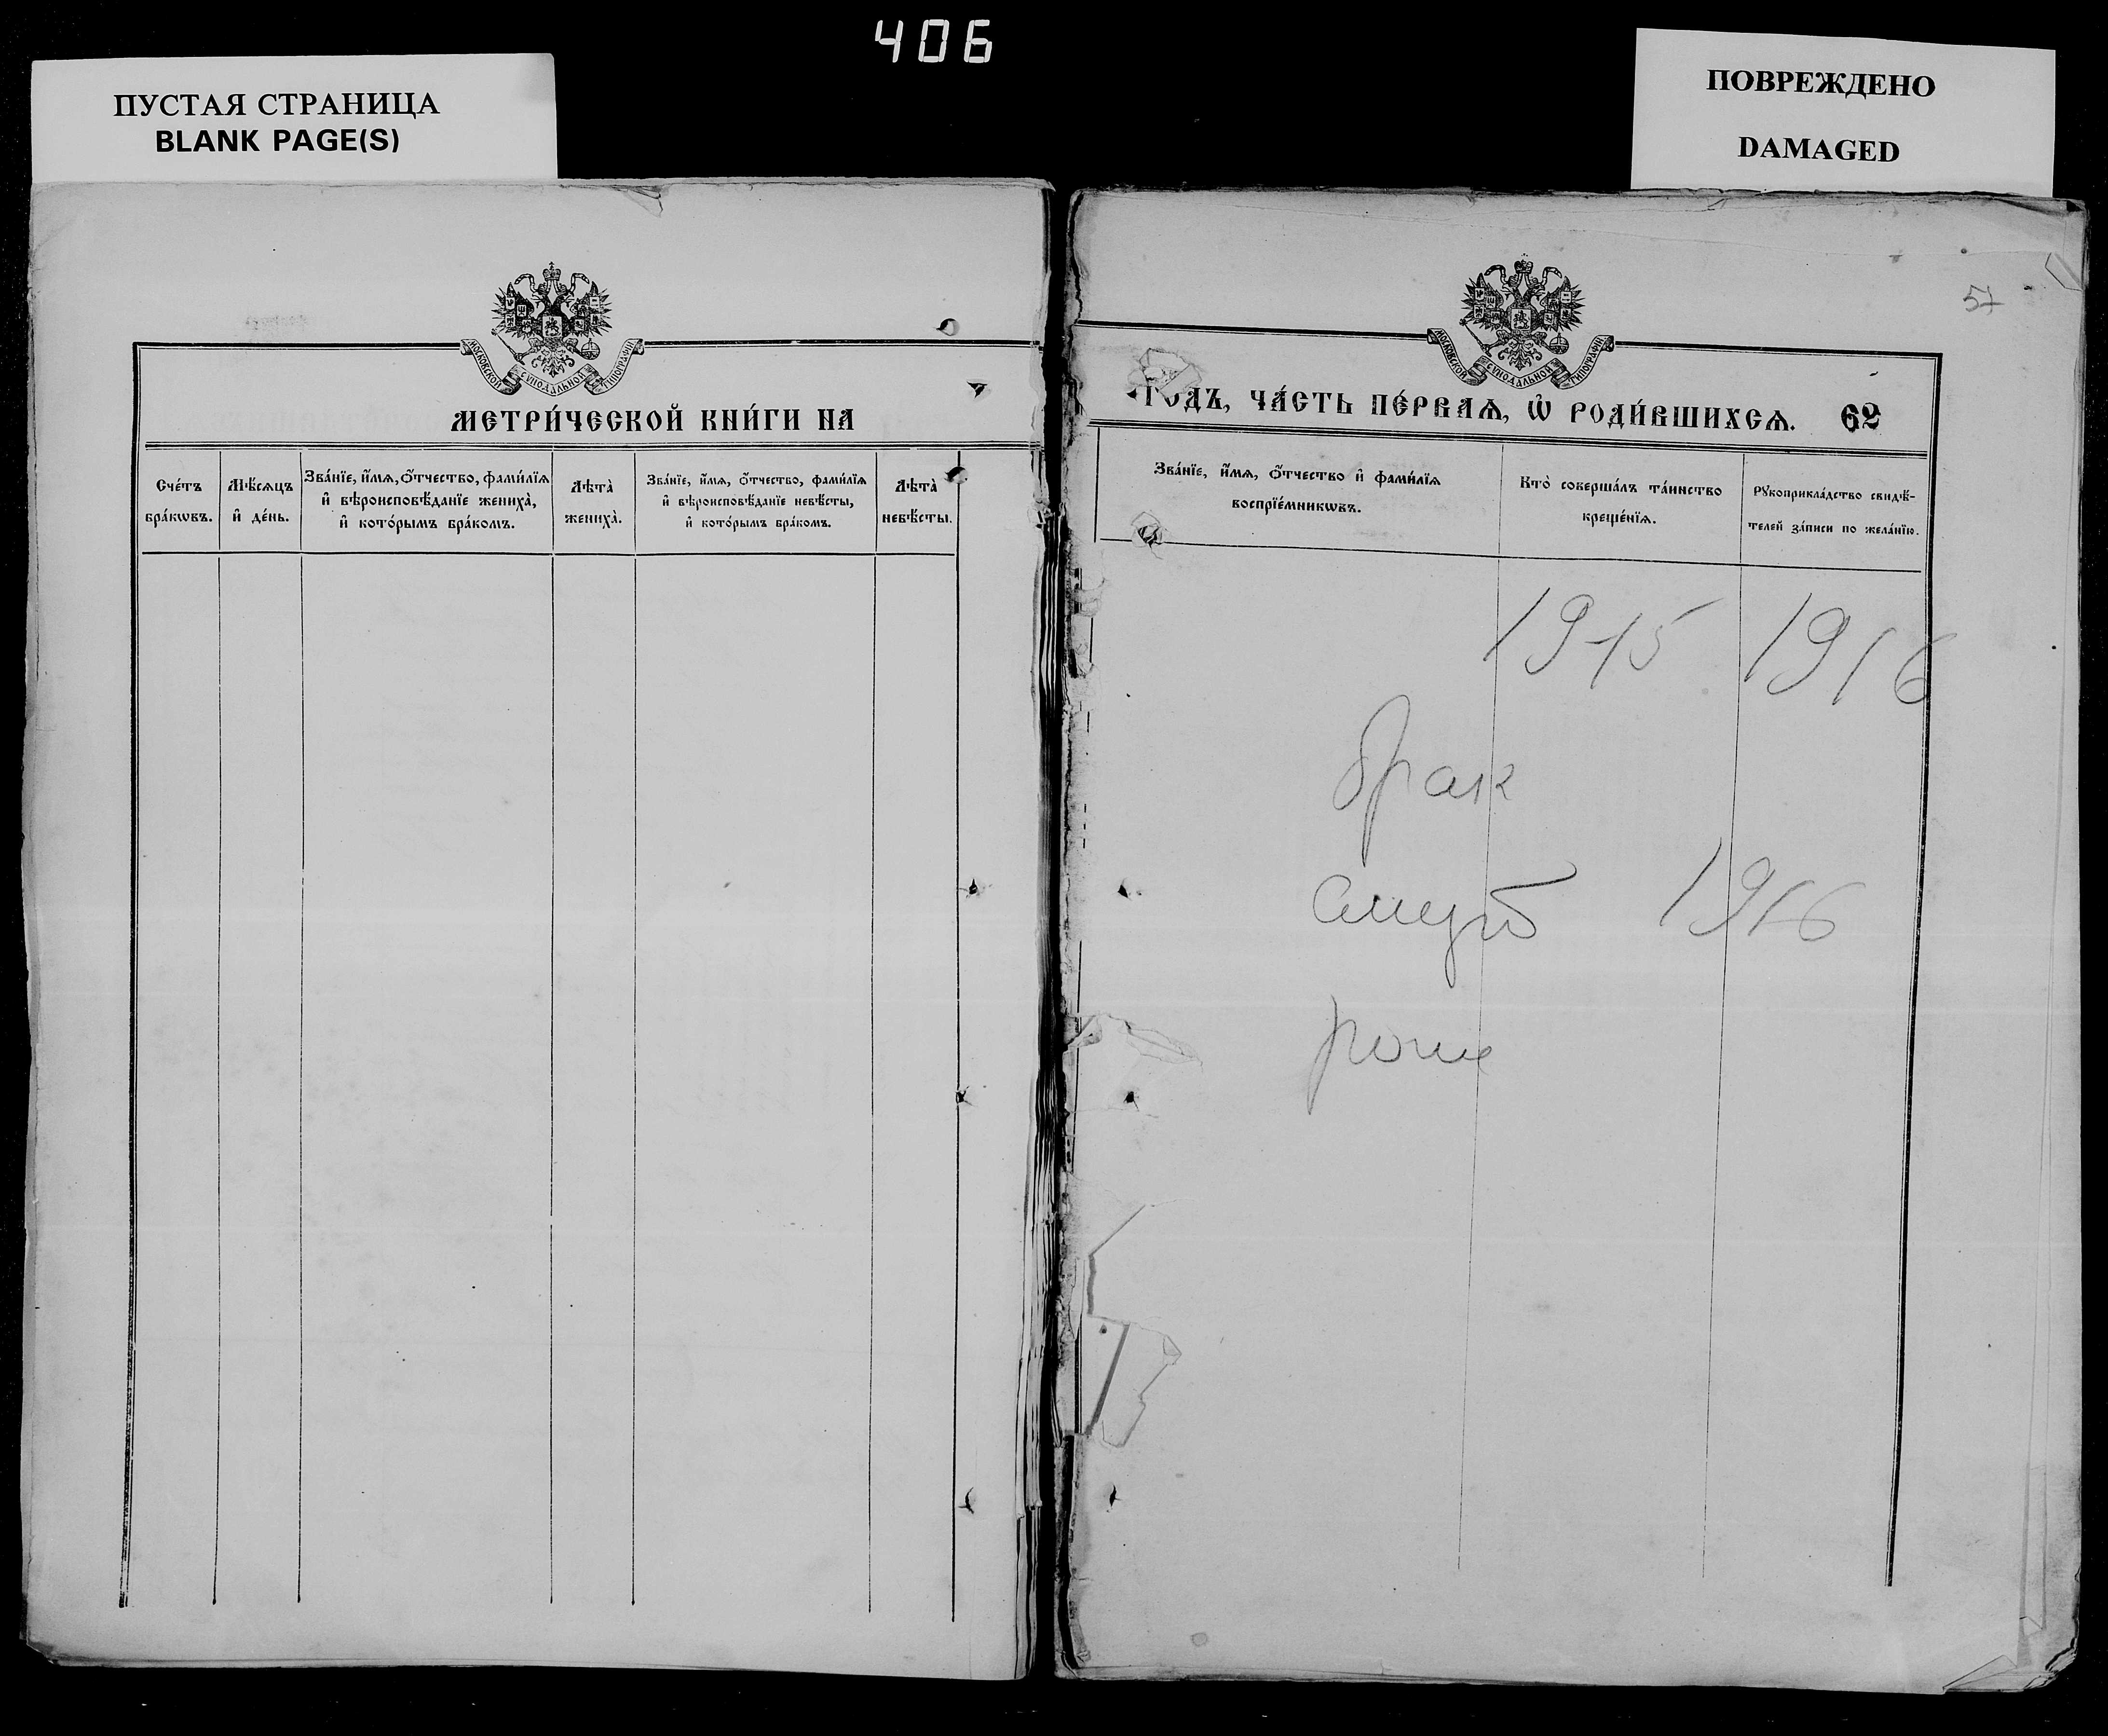 406
ПУСТАЯ СТРАНИЦА
BLANK PAGE(S)
ПОВРЕЖДЕНО
DAMAGED
57
МОСКОВСКОЙ СѴНОДАЛЬНОЙ ТИПОГРАФІИ
МЕТРИ́ЧЕСКОЙ КНИ́ГИ НА
Сче́тъ бра́кѡвъ.
Мѣ́сѧцъ и҆ де́нь.
Зва́нїе, и҆́мѧ, ѻ҆́тчество, фами́лїѧ и҆ вѣроисповѣ́данїе жениха̀, и҆ кото́рымъ бра́комъ.
Лѣта̀ жениха̀.
Зва́нїе, и҆́мѧ, ѻ҆́тчество, фами́лїѧ и҆ вѣроисповѣ́данїе невѣ́сты, и҆ кото́рымъ бра́комъ.
Лѣта̀ невѣ́сты.
МОСКОВСКОЙ СѴНОДАЛЬНОЙ ТИПОГРАФІИ
ГОДЪ, ЧА́СТЬ ПЕ́РВАѦ, Ѡ҆ РОДИ́ВШИХСѦ. 62
Зва́нїе, и҆́мѧ, ѻ҆́тчество и҆ фами́лїѧ воспрїе́мникѡвъ.
Кто̀ соверша́лъ та́инство креще́нїѧ.
Рꙋкоприкла́дство свидѣ́-телей за́писи по жела́нїю.
1915 1916
брак
смерт 1916